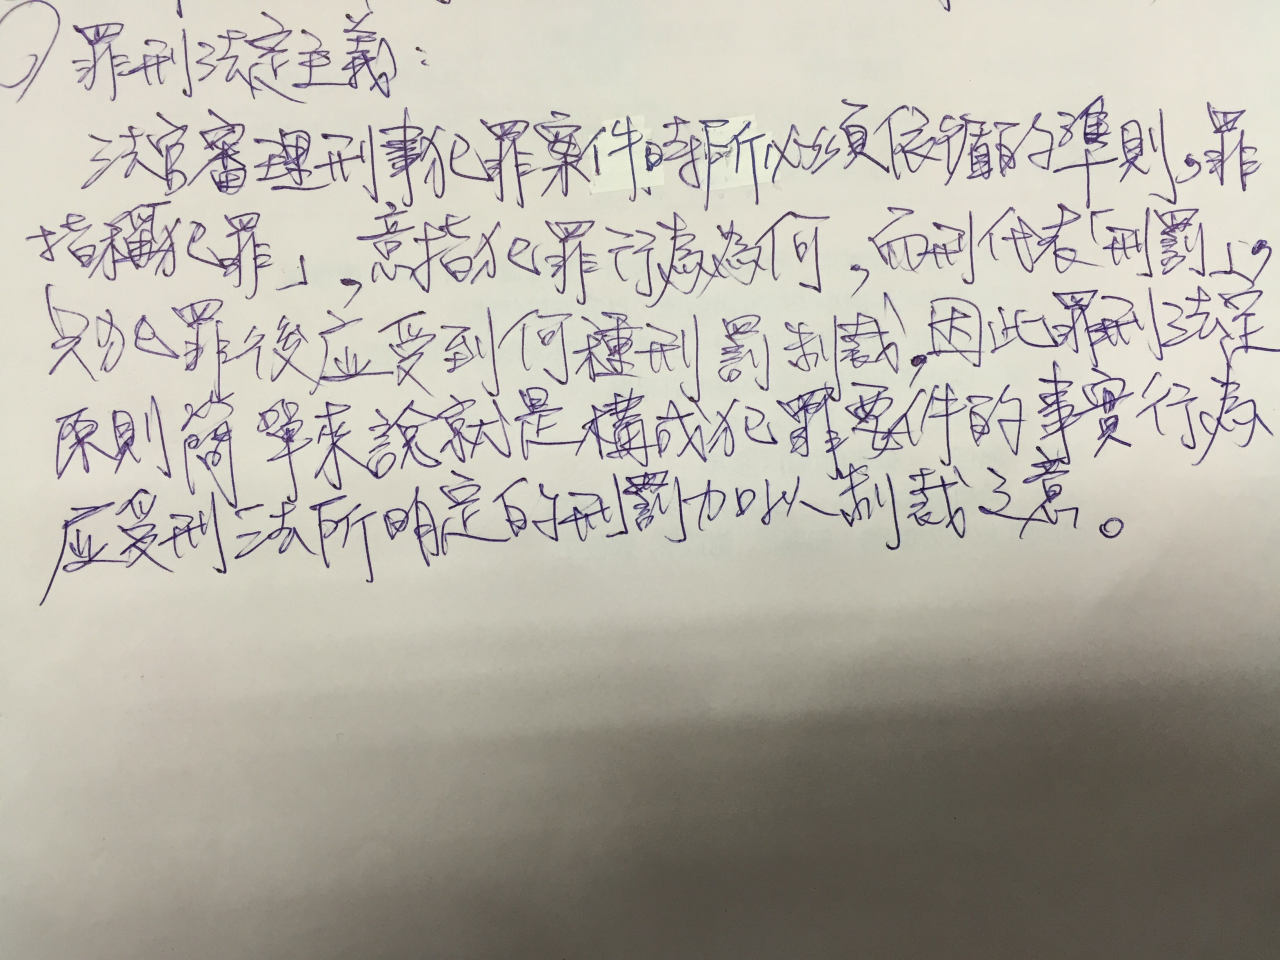 罪刑法定主義：
法官審理刑事犯罪案件時所必須依循的準則，罪
指稱「犯罪」，意指犯罪行為為何，而刑代表「刑罰」，
犯罪後应受到何種刑罰制裁，因此罪刑法定
原則簡單來說就是構成犯罪要件的事實行為
应受刑法所明定的刑罰加以制裁之意。